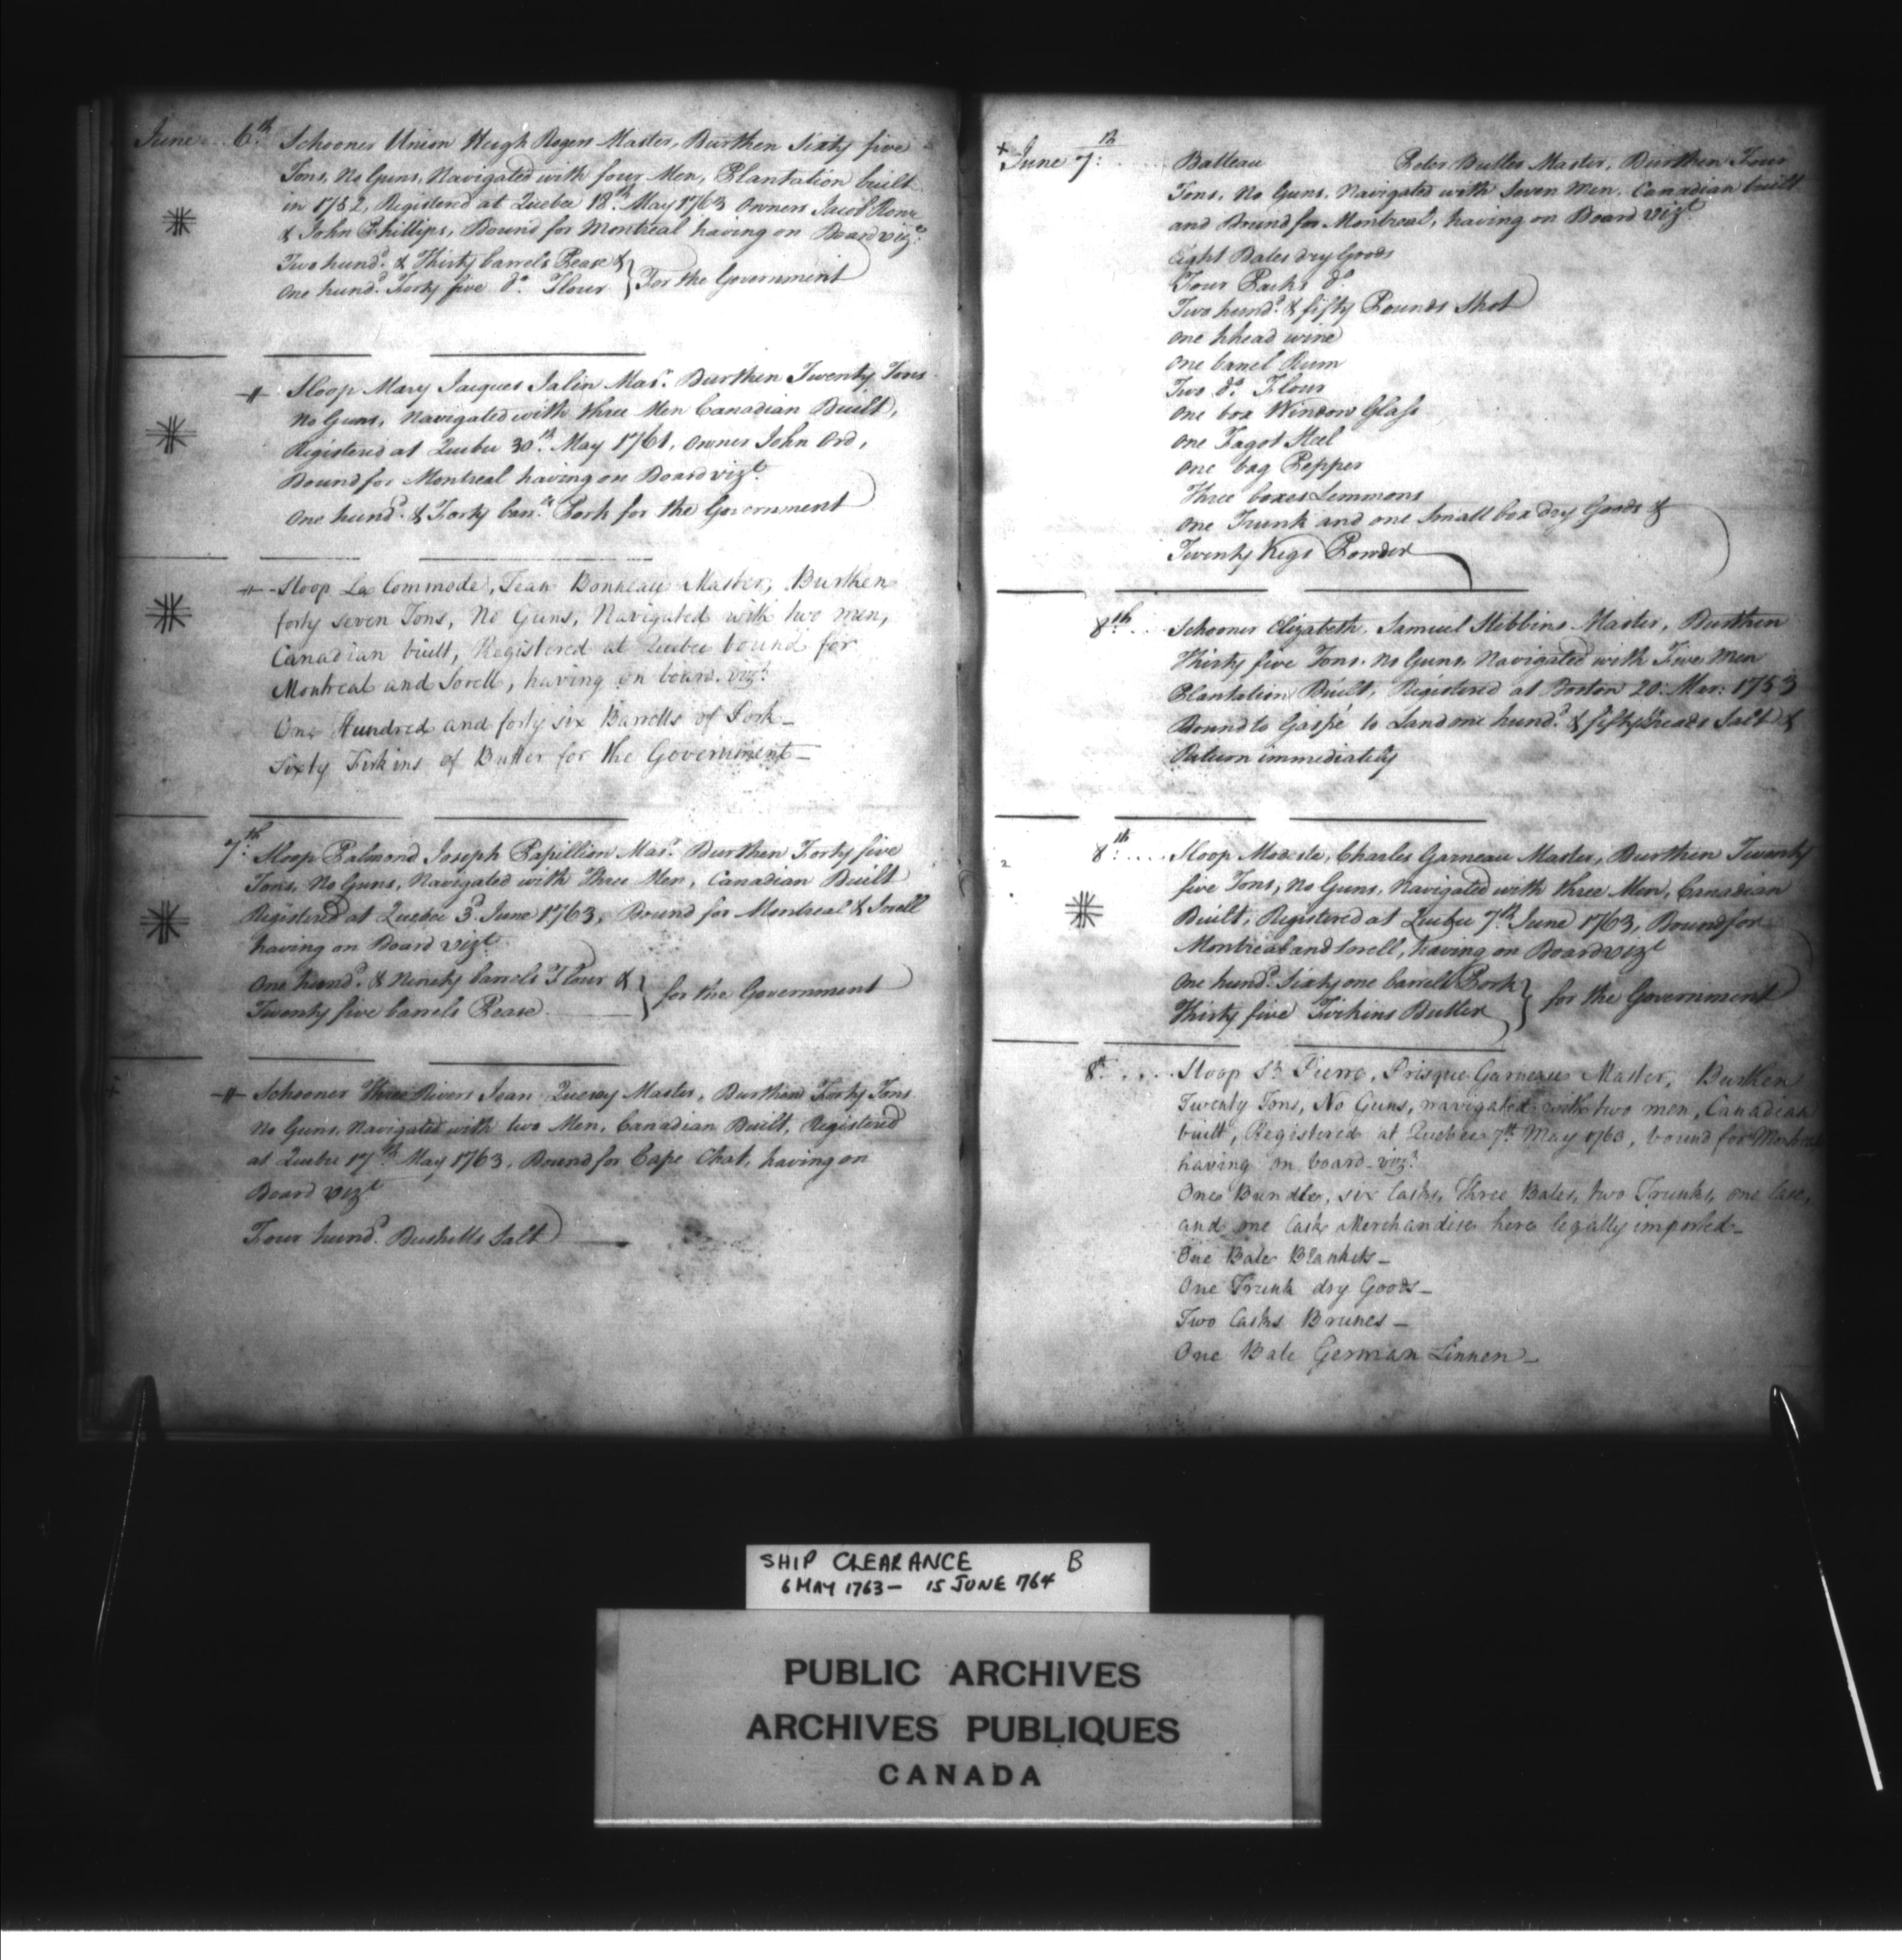 June 6th. Schooner Union Hugh Rogers Master, Burthen Sixty five
Tons, No Guns, Navigated with four Men, Plantation built
in 1752, Registered at Quebec 18th. May 1763 Owners Jacob
& John Phillips, Bound for Montreal having on Board vizt.
Two hund.d & Thirty barrels Pease &
One hund.d Forty five do. Flour } For the Government
Sloop Mary Jacques Salin Mas.r Burthen Twenty Tons
No Guns, Navigated with three Men Canadian Built,
Registered at Quebec 30th. May 1761, Owner John Ord,
Bound for Montreal having on Board vizt.
One hund.d & Forty barr.ls Pork for the Government
Sloop La Commode, Jean Bonneau Master, Burthen
forty seven Tons, No Guns, Navigated with two men,
Canadian built, Registered at Quebec bound for
Montreal and Sorell, having on board vizt.
One Hundred and forty six Barrells of Pork_
Sixty Firkins of Butter for the Government_
7th. Sloop Palmond Joseph Papillion Mas.r Burthen Forty five
Tons, No Guns, Navigated with Three Men, Canadian Built
Registered at Quebec 3d. June 1763, Bound for Montreal & Sorell
having on Board vizt
One hund.d & Ninety barrels Flour &
Twenty five barrels Pease } for the Government
Schooner Three Rivers Jean Master, Burthen Forty Tons
No Guns, Navigated with two Men, Canadian Built, Registered
at Quebec 17th May 1763, Bound for Cape Chat, having on
Board vizt
Four hund.d Bushells Salt
+ June 7th: .... Batteau Peter Butler Master, Burthen Four
Tons, No Guns, Navigated with Seven Men, Canadian built
and Bound for Montreal, having on Board vizt
Eight Bales dry Goods
Four Packs do.
Two hund.d & fifty Pounds Shot
One hhead wine
One barrel Rum
Two do. Flour
One box Window Glass
One Fagot Steel
One bag Pepper
Three boxes Lemmons
One Trunk and one Small box dry Goods &
Twenty Kegs Powder
8th... Schooner Elizabeth, Samuel Stebbins Master, Burthen
Thirty five Tons, No Guns, Navigated with Five Men
Plantation Built, Registered at Boston 20: Mar: 1753
Bound to Gaspé to Land one hund.d & fifty hheads Salt &
Return immediately
8th:.... Sloop Modeste, Charles Garneau Master, Burthen Twenty
five Tons, No Guns, Navigated with three Men, Canadian
Built, Registered at Quebec 7th June 1763, Bound for
Montreal and Sorell, having on Board vizt
One hund.d Sixty one barrells Pork
Thirty five Firkins Butter } for the Government
8th .... Sloop St. Pierre, Prisque Garneau Master, Burthen
Twenty Tons, No Guns, navigated with two men, Canadian
built, Registered at Quebec 7th May 1763, bound for Montreal
having on board vizt.
One Bundle, six Casks, Three Bales, two Trunks, one Case,
and one Cask Merchandise here legally imported_
One Bale Blankets_
One Trunk dry Goods_
Two Casks Brunes_
One Bale German Linnen_
SHIP CLEARANCE B
6 MAY 1763 - 15 JUNE 764
PUBLIC ARCHIVES
ARCHIVES PUBLIQUES
CANADA